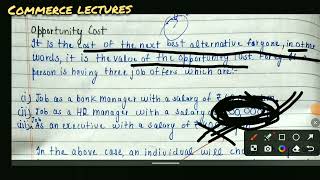 COMMERCE LECTURES
Opportunity Cost
It is the cost of the next best alternative forgone, in other
words, it is the value of the opportunity lost. For eg If a
person is having three job offers which are:-
(i) Job as a bank manager with a salary of ₹
(ii) Job as a HR manager with a salary 00,00
(iii) Job As an executive with a salary of ₹
In the above case, an individual will